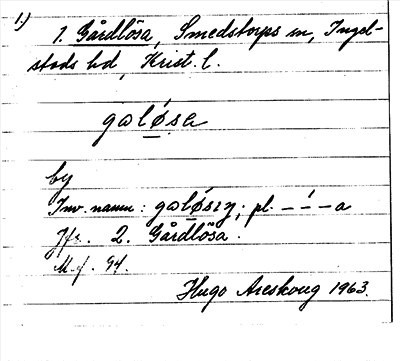 1.)
1. Gårdlösa, Smedstorps sn, Ingel-
stads hd, Krist. l.
gəlǿsa
by
Inv. namn: gəlǿsɪŋ; pl. – –́ – a
Jfr. 2. Gårdlösa.
M.f. 94.
Hugo Areskoug 1963.